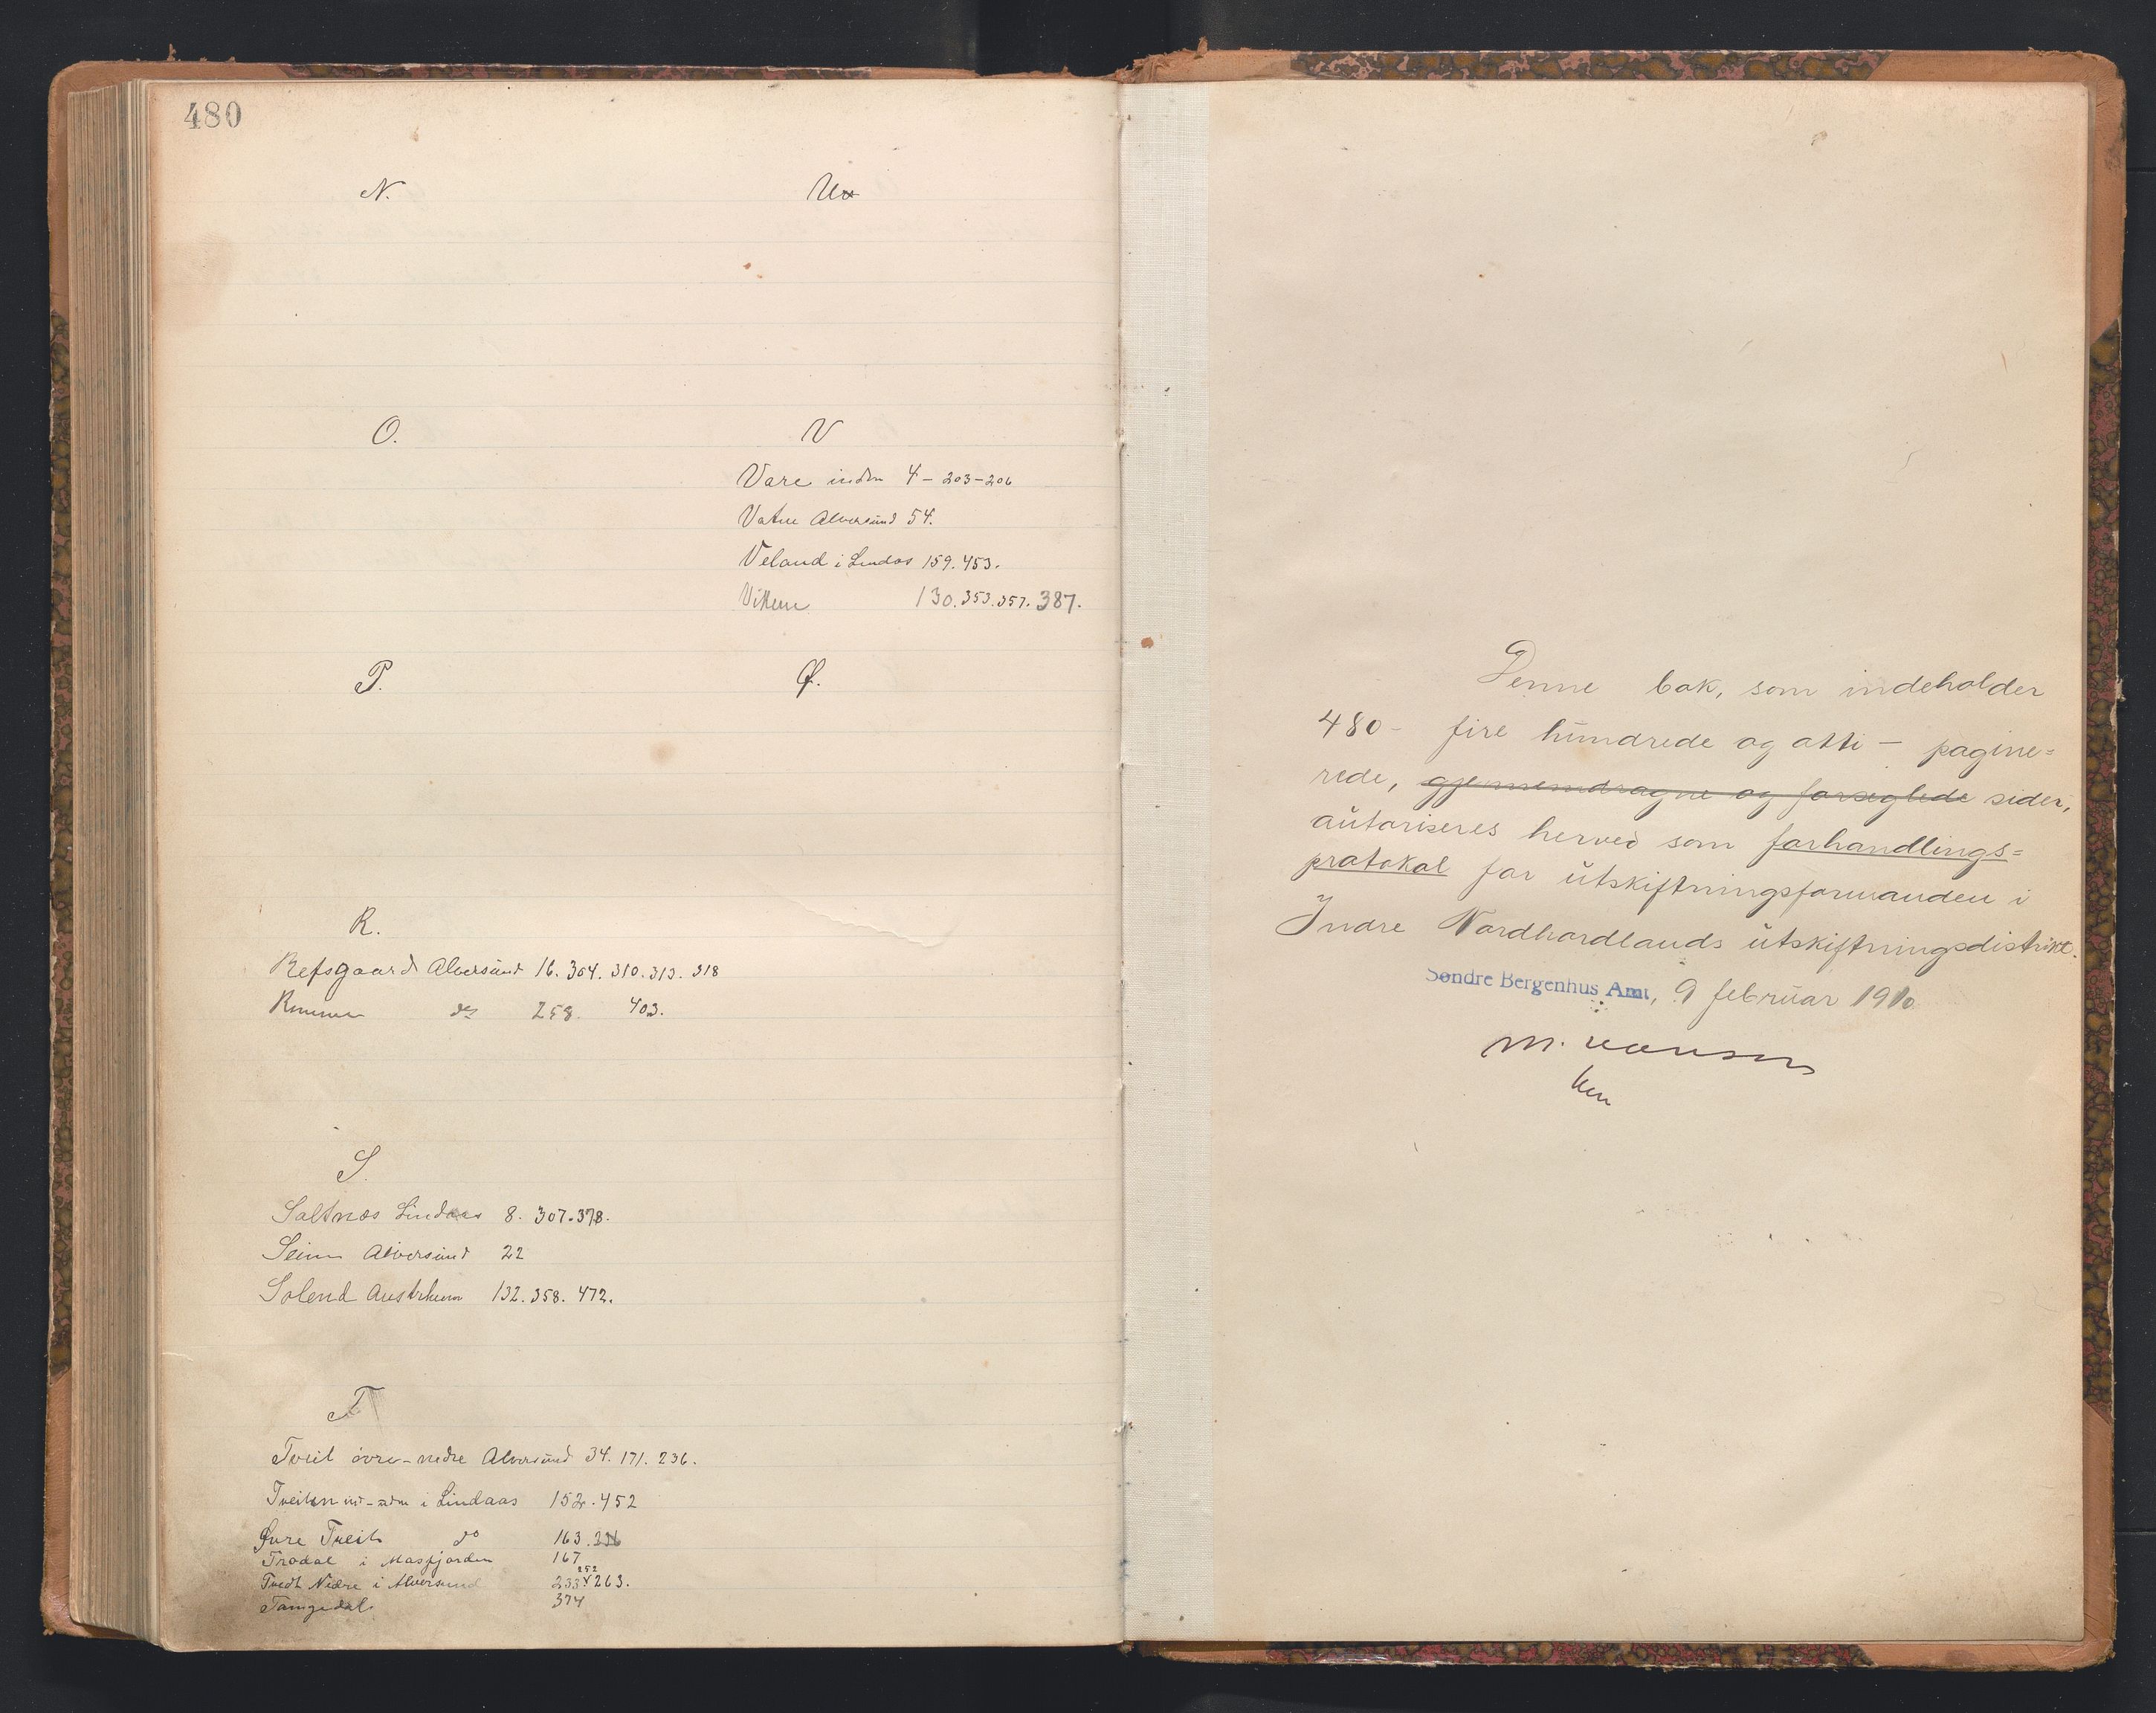 480
N.
O.
P.
R.
Refsgaard Alversund 16. 304. 310. 313. 318
do 258. 403.
S.
Saltnes Lindaas 8. 307. 378.
Seim Alversund 22
Solend Austrheim 132. 358. 472.
T
Tveit övre-nedre Alversund 34. 171. 236.
Tveiten i Lindaas 152. 452
Øvre Tveit do 163.
Trodal i Masfjorden 167
Tvedt Nedre i Alversund 233 252 263.
Tangedal 374
U
V
Vare indre 4 - 203-206
Vatne Alversund 54.
Veland i Lindas 159. 453.
Vikene 130. 353. 357. 387.
Ø.
Denne bok, som indeholder
480 - fire hundrede og otti - pagine=
rede, gjennemdragne og forseglede sider,
autoriseres herved som forhandlings=
protokol for utskiftningsformanden i
Indre Nordhordlands utskiftningsdistrikt.
Søndre Bergenhus Amt, 9 februar 1910
M.